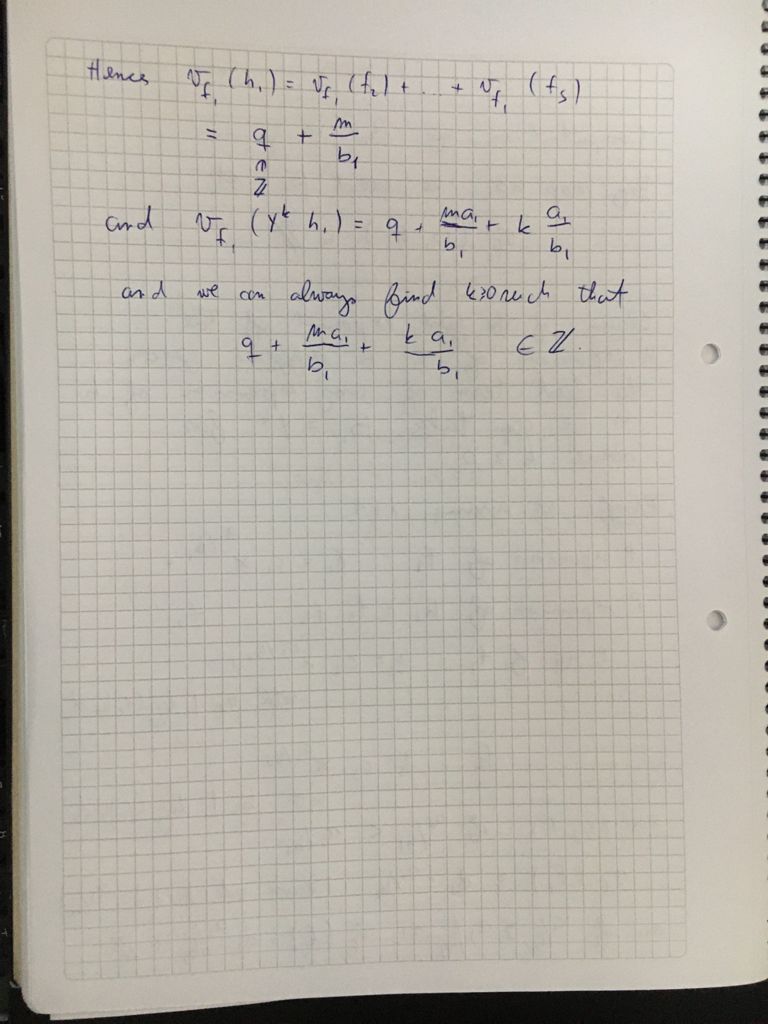 Hence v_{f_1} (h_1) = v_{f_1} (f_2) + ... + v_{f_1} (f_s)
= q + \frac{m}{b_1}
↑
ℤ
and v_{f_1} (Y^k h_1) = q + \frac{m a_1}{b_1} + k \frac{a_1}{b_1}
and we can always find k≥0 such that
q + \frac{m a_1}{b_1} + \frac{k a_1}{b_1} ∈ ℤ.